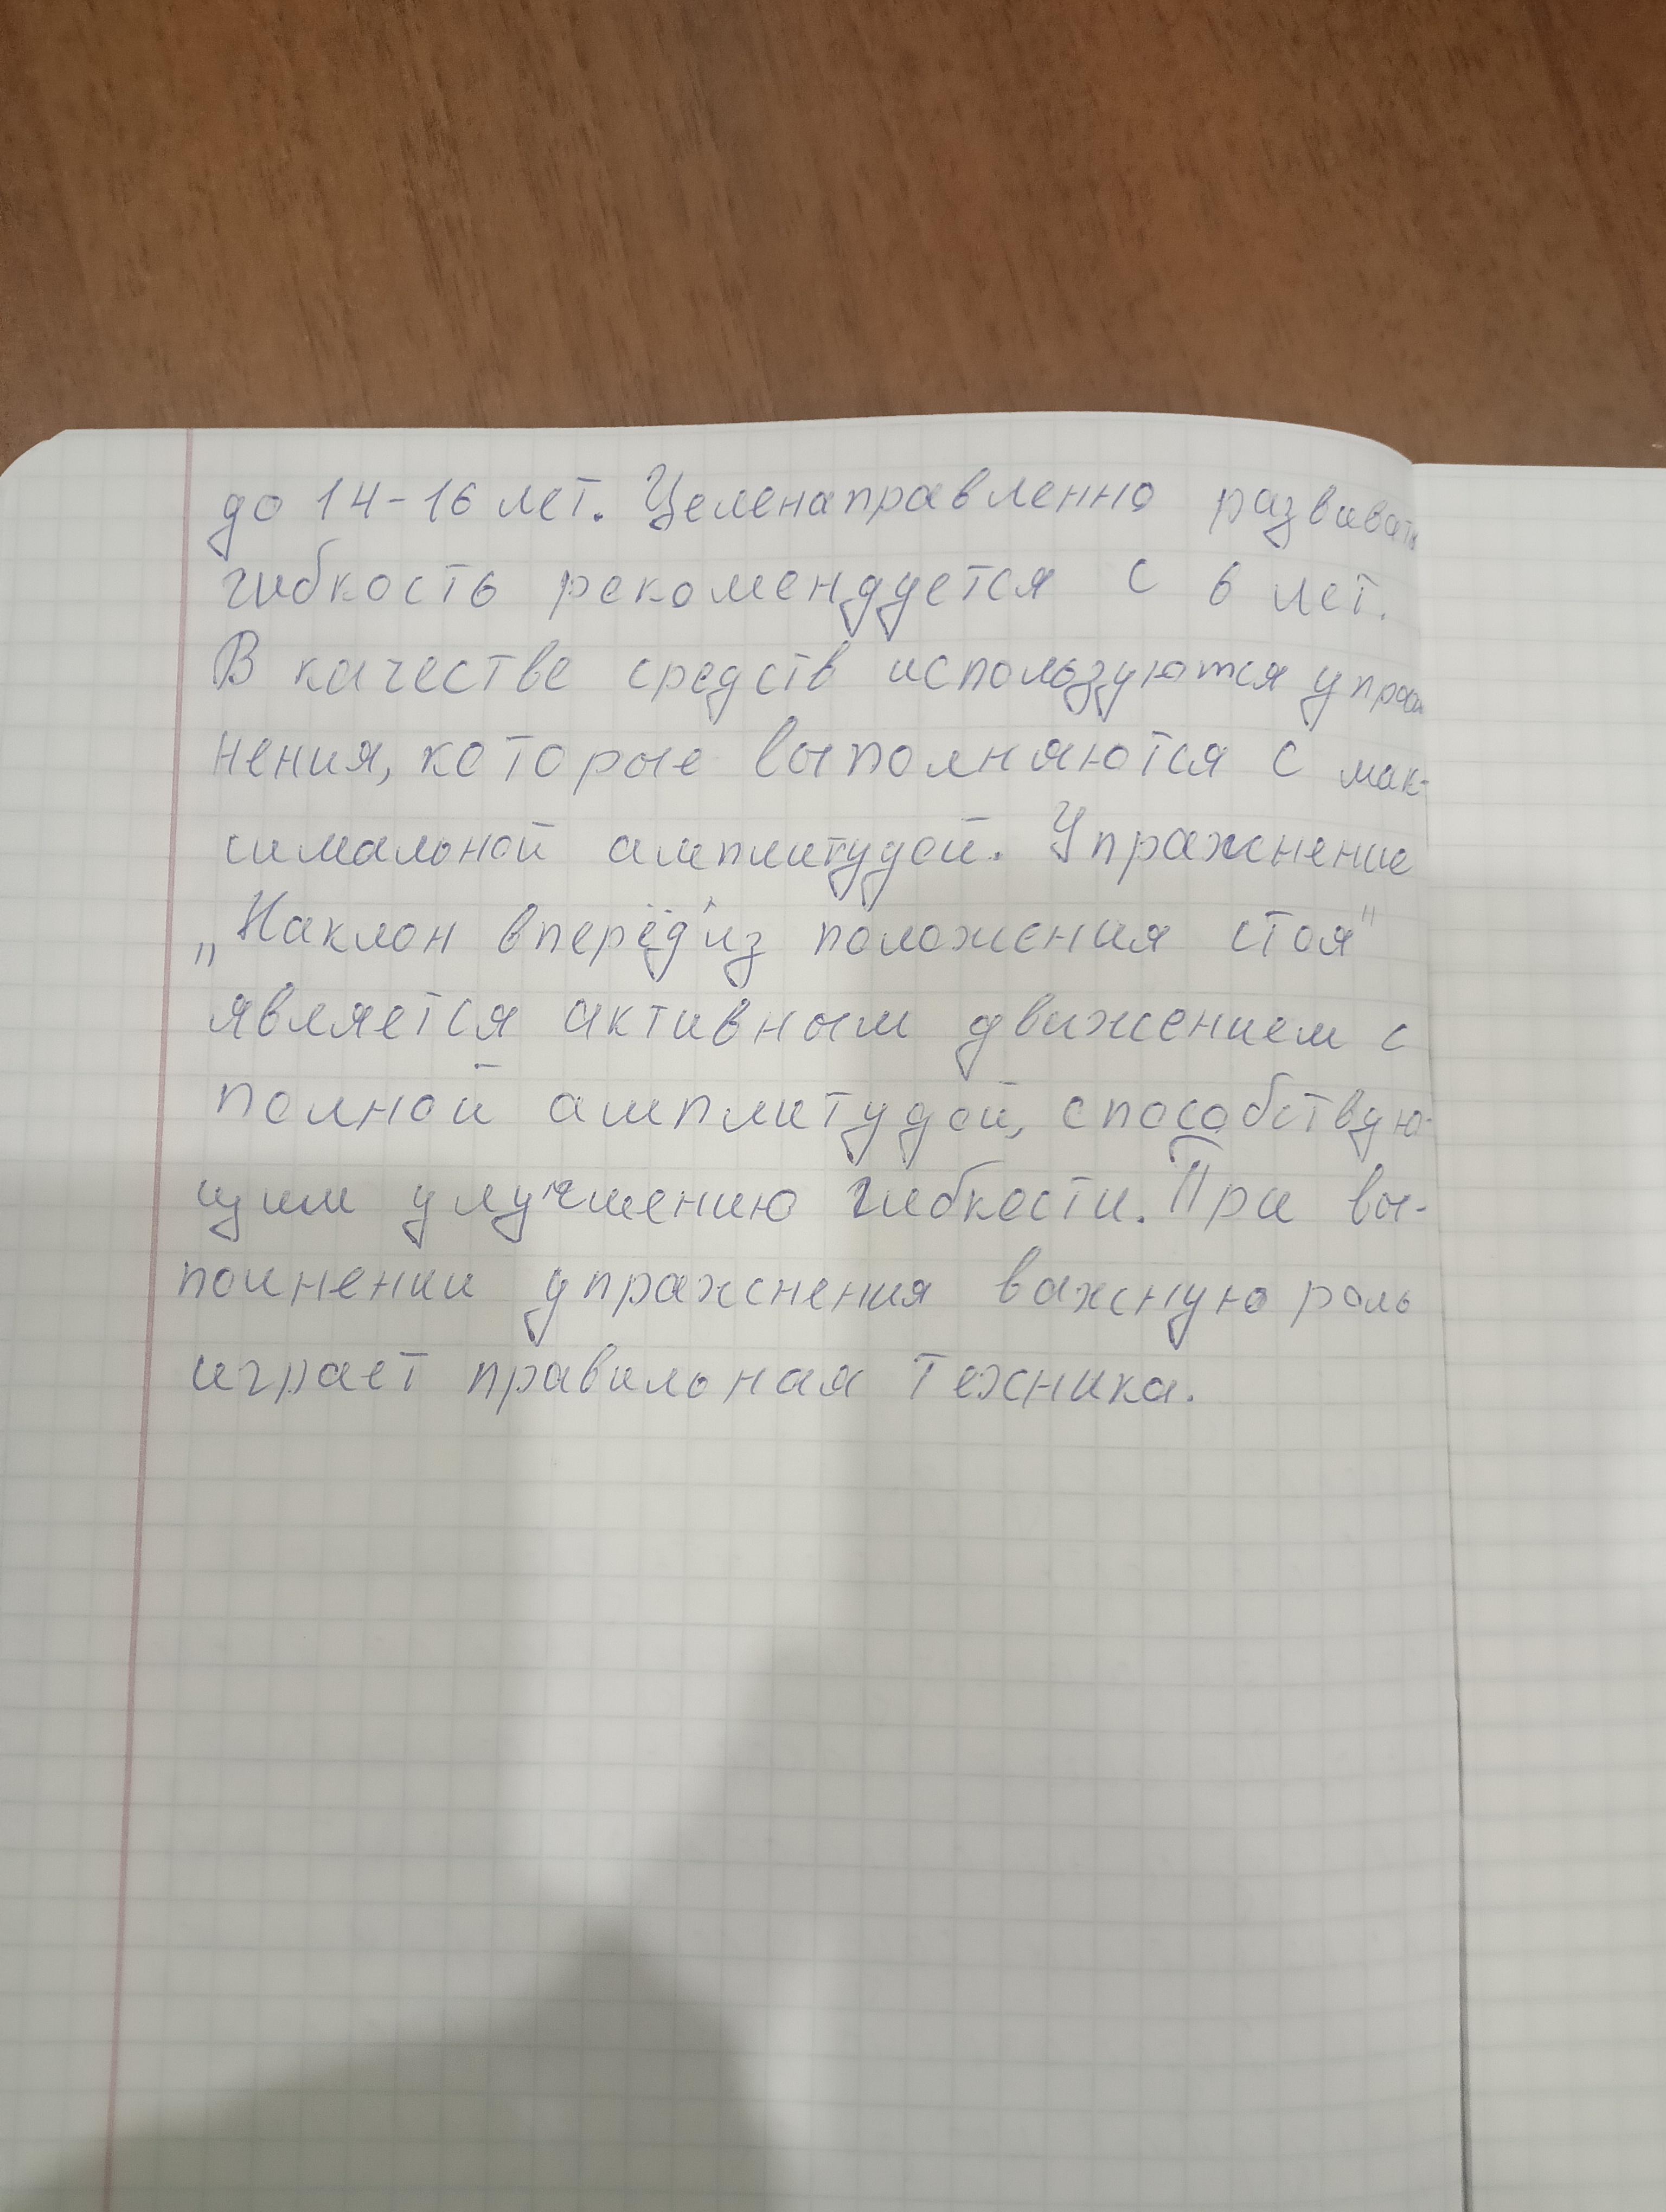 до 14-16 лет. Целенаправленно развивать
гибкость рекомендуется с 6 лет.
В качестве средств используются упраж
нения, которые выполняются с мак-
симальной амплитудой. Упражнение
„Наклон вперёд из положения стоя"
является активным движением с
полной амплитудой, способствую-
щим улучшению гибкости. При вы-
полнении упражнения важную роль
играет правильная техника.